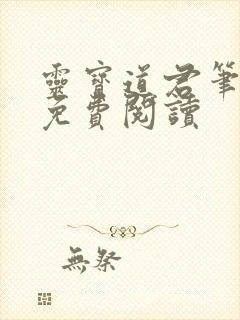 靈寶道君筆
免費閱讀
無祭